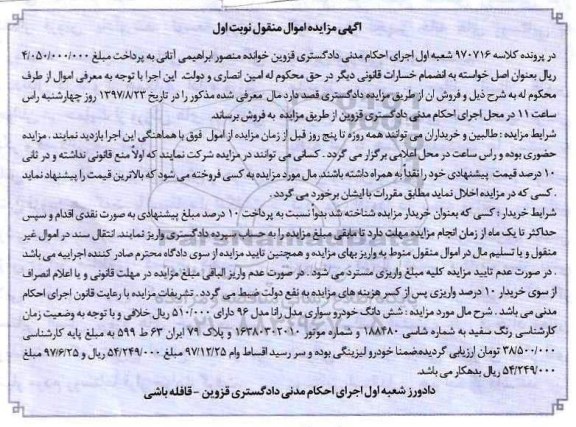 آگهی مزایده اموال منقول نوبت اول
در پرونده کلاسه ۹۷۰۷۱۶ شعبه اول اجرای احکام مدنی دادگستری قزوین خوانده منصور ابراهیمی آتانی به پرداخت مبلغ ۴/۰۵۰/۰۰۰/۰۰۰
ریال بعنوان اصل خواسته به انضمام خسارات قانونی دیگر در حق محکوم له امین انصاری و دولت. این اجرا با توجه به معرفی اموال از طرف
محکوم له به شرح ذیل و فروش آن از طریق مزایده دادگستری قصد دارد مال معرفی شده مذکور را در تاریخ ۱۳۹۷/۸/۲۳ روز چهارشنبه راس
ساعت ۱۱ در محل اجرای احکام مدنی دادگستری قزوین از طریق مزایده به فروش برساند.
شرایط مزایده : طالبین و خریداران می توانند همه روزه تا پنج روز قبل از زمان مزایده از اموال فوق با هماهنگی این اجرا بازدید نمایند . مزایده
حضوری بوده و راس ساعت در محل اعلامی برگزار می گردد . کسانی می توانند در مزایده شرکت نمایند که اولاً منع قانونی نداشته و در ثانی
۱۰ درصد قیمت پیشنهادی خود را نقداً به همراه داشته باشند. مال مورد مزایده به کسی فروخته می شود که بالاترین قیمت را پیشنهاد نماید
. کسی که در مزایده اخلال نماید مطابق مقررات با ایشان برخورد می گردد .
شرایط خریدار : کسی که بعنوان خریدار مزایده شناخته شد بدواً نسبت به پرداخت ۱۰ درصد مبلغ پیشنهادی به صورت نقدی اقدام و سپس
حداکثر تا یک ماه از زمان انجام مزایده مهلت دارد تا مابقی مبلغ مزایده را به حساب سپرده دادگستری واریز نمایند. انتقال سند در اموال غیر
منقول و یا تسلیم مال در اموال منقول منوط به واریز بهای مزایده و همچنین تایید مزایده از سوی دادگاه محترم صادر کننده اجراییه می باشد
. در صورت عدم تایید مزایده کلیه مبلغ واریزی مسترد می شود . در صورت عدم واریز الباقی مبلغ مزایده در مهلت قانونی و یا اعلام انصراف
از سوی خریدار ۱۰ درصد واریزی پس از کسر هزینه های مزایده به نفع دولت ضبط می گردد . تشریفات مزایده با رعایت قانون اجرای احکام
مدنی می باشد . شرح مال مورد مزایده : شش دانگ خودرو سواری مدل رانا مدل ۹۶ دارای ۵۱۰/۰۰۰ ریال خلافی و با توجه به وضعیت زمان
کارشناسی رنگ سفید به شماره شاسی ۱۸۸۴۸۰ و شماره موتور ۱۶۳۸۰۳۰۲۰۱۰ و پلاک ۷۹ ایران ۶۳ ط ۵۹۹ به مبلغ پایه کارشناسی
۳۸/۵۰۰/۰۰۰ تومان ارزیابی گردیده ضمنا خودرو لیزینگی بوده و سر رسید اقساط وام ۹۷/۱۲/۲۵ مبلغ ۵۴/۲۴۹/۰۰۰ ریال و ۹۷/۶/۲۵ مبلغ
۵۴/۲۴۹/۰۰۰ ریال بدهکار می باشد.
دادورز شعبه اول اجرای احکام مدنی دادگستری قزوین - قافله باشی